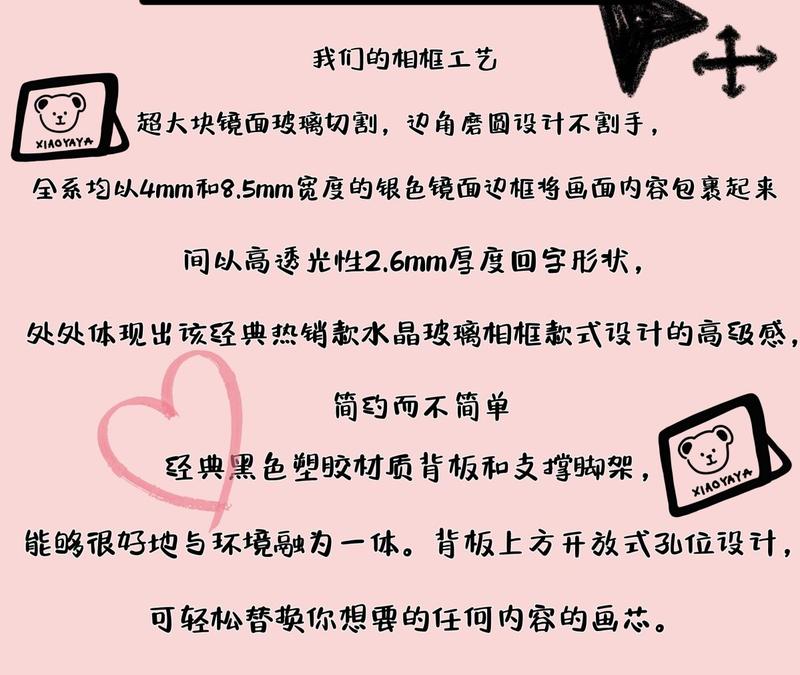 我们的相框工艺
XIAOYAYA
超大块镜面玻璃切割，边角磨圆设计不割手，
全系均以4mm和8.5mm宽度的银色镜面边框将画面内容包裹起来
间以高透光性2.6mm厚度回字形状，
处处体现出该经典热销款水晶玻璃相框款式设计的高级感，
简约而不简单
经典黑色塑胶材质背板和支撑脚架，
XIAOYAYA
能够很好地与环境融为一体。背板上方开放式孔位设计，
可轻松替换你想要的任何内容的画芯。